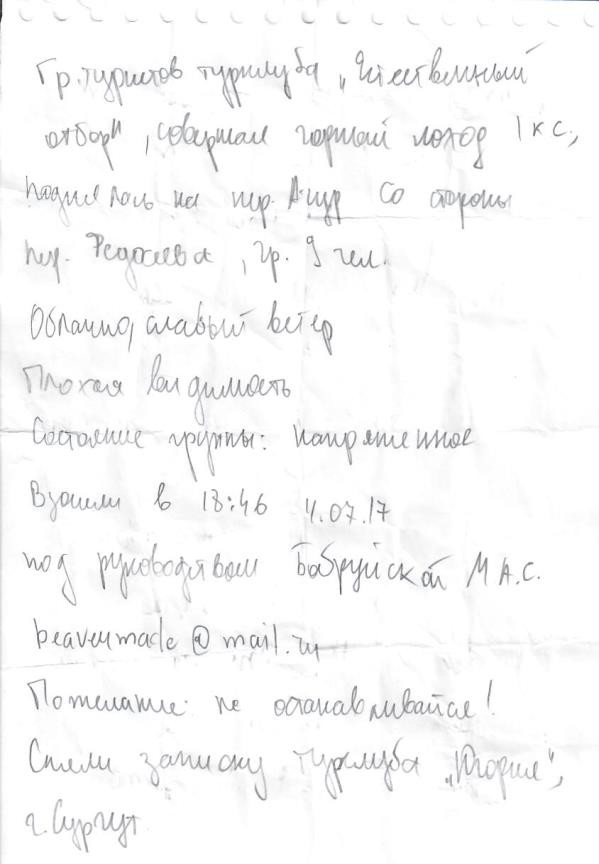 Гр. туристов турклуба „Естественный
отбор", совершая горный поход 1 к с.,
поднялась на пер. со стороны
пер. Федосеева, гр. 9 чел.
Облачно, слабый ветер
Плохая видимость
Состояние группы: напряженное
Взошли в 18:46 4.07.17
под руководством Бобруйской М А.С.
beavermade@mail.ru
Пожелание: не останавливайся!
Сняли записку турклуба
г. Сургут